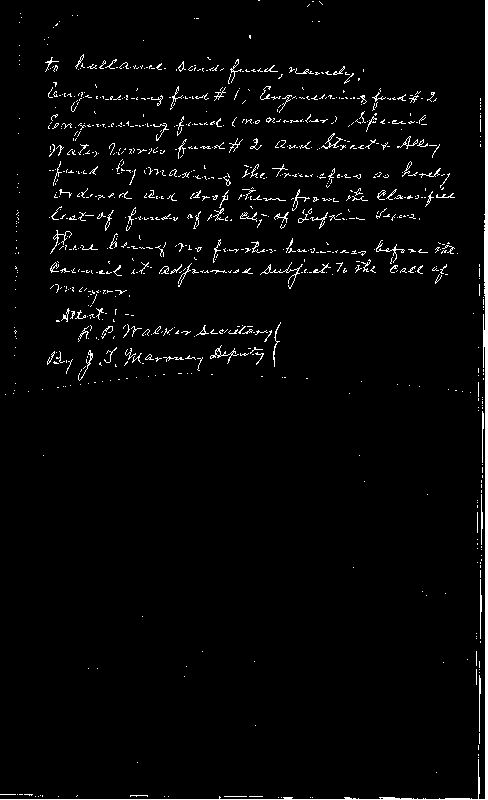 to ballance said fund, namely:
Engineering fund #1; Engineering fund #2
Engineering fund (no number) Special
Water Works fund #2 and Street & Alley
fund by making the transfers as hereby
ordered and drop them from the Classified
list of funds of the City of Lufkin Texas.
There being no further business before the
Council it adjourned subject to the call of
Mayor.
Attest:-
R. P. Walker Secretary(
By J. T. Maroney Deputy(